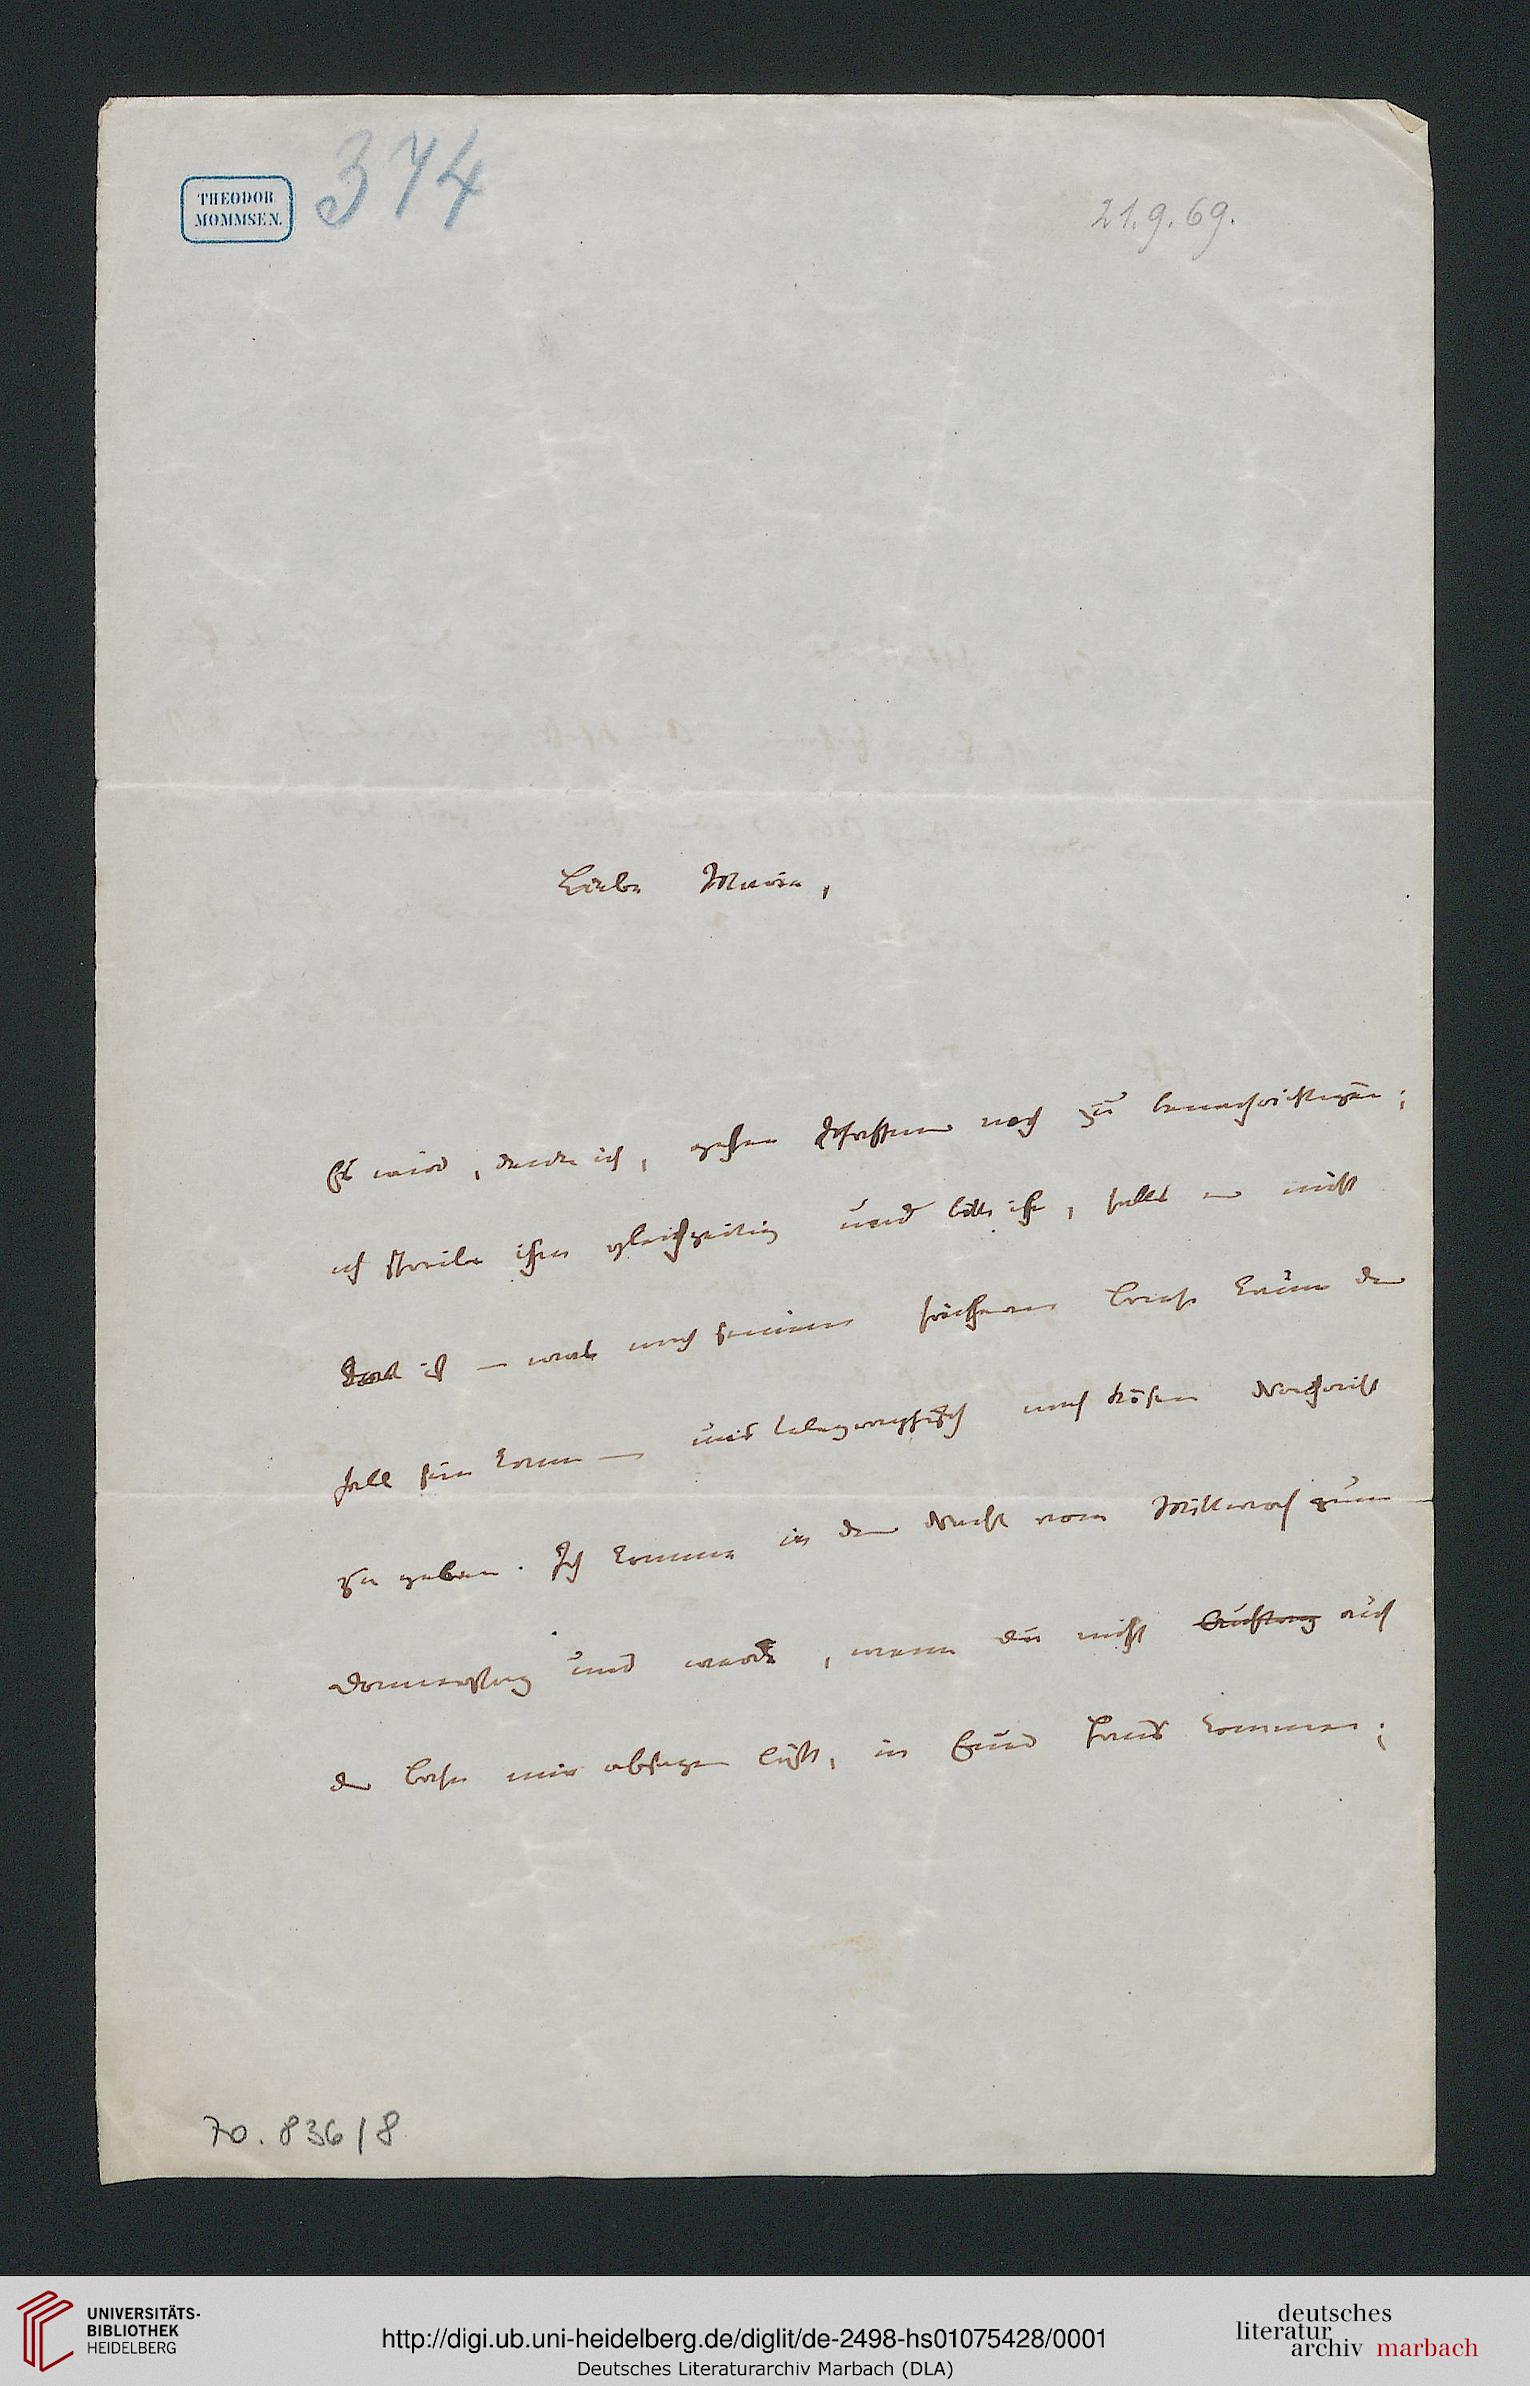 THEODOR
MOMMSEN.
374
21.9.69.
Liebe Marie,
Es wird, denke ich, gehen noch zu benachrichtigen;
ich schreibe ihm gleichzeitig und bitte ihn, falls er nicht
ist — was nach seinem früheren Briefe kaum der
Fall sein kann — uns telegraphisch nach Kösen Nachricht
zu geben. Ich komme in der Nacht vom Mittwoch zum
Donnerstag und werde, wenn du nicht auf
der Bahn mir absagen läßt, in Euer Haus kommen;
70.836/8
UNIVERSITÄTS-
BIBLIOTHEK
HEIDELBERG
http://digi.ub.uni-heidelberg.de/diglit/de-2498-hs01075428/0001
Deutsches Literaturarchiv Marbach (DLA)
deutsches
literatur
archiv marbach